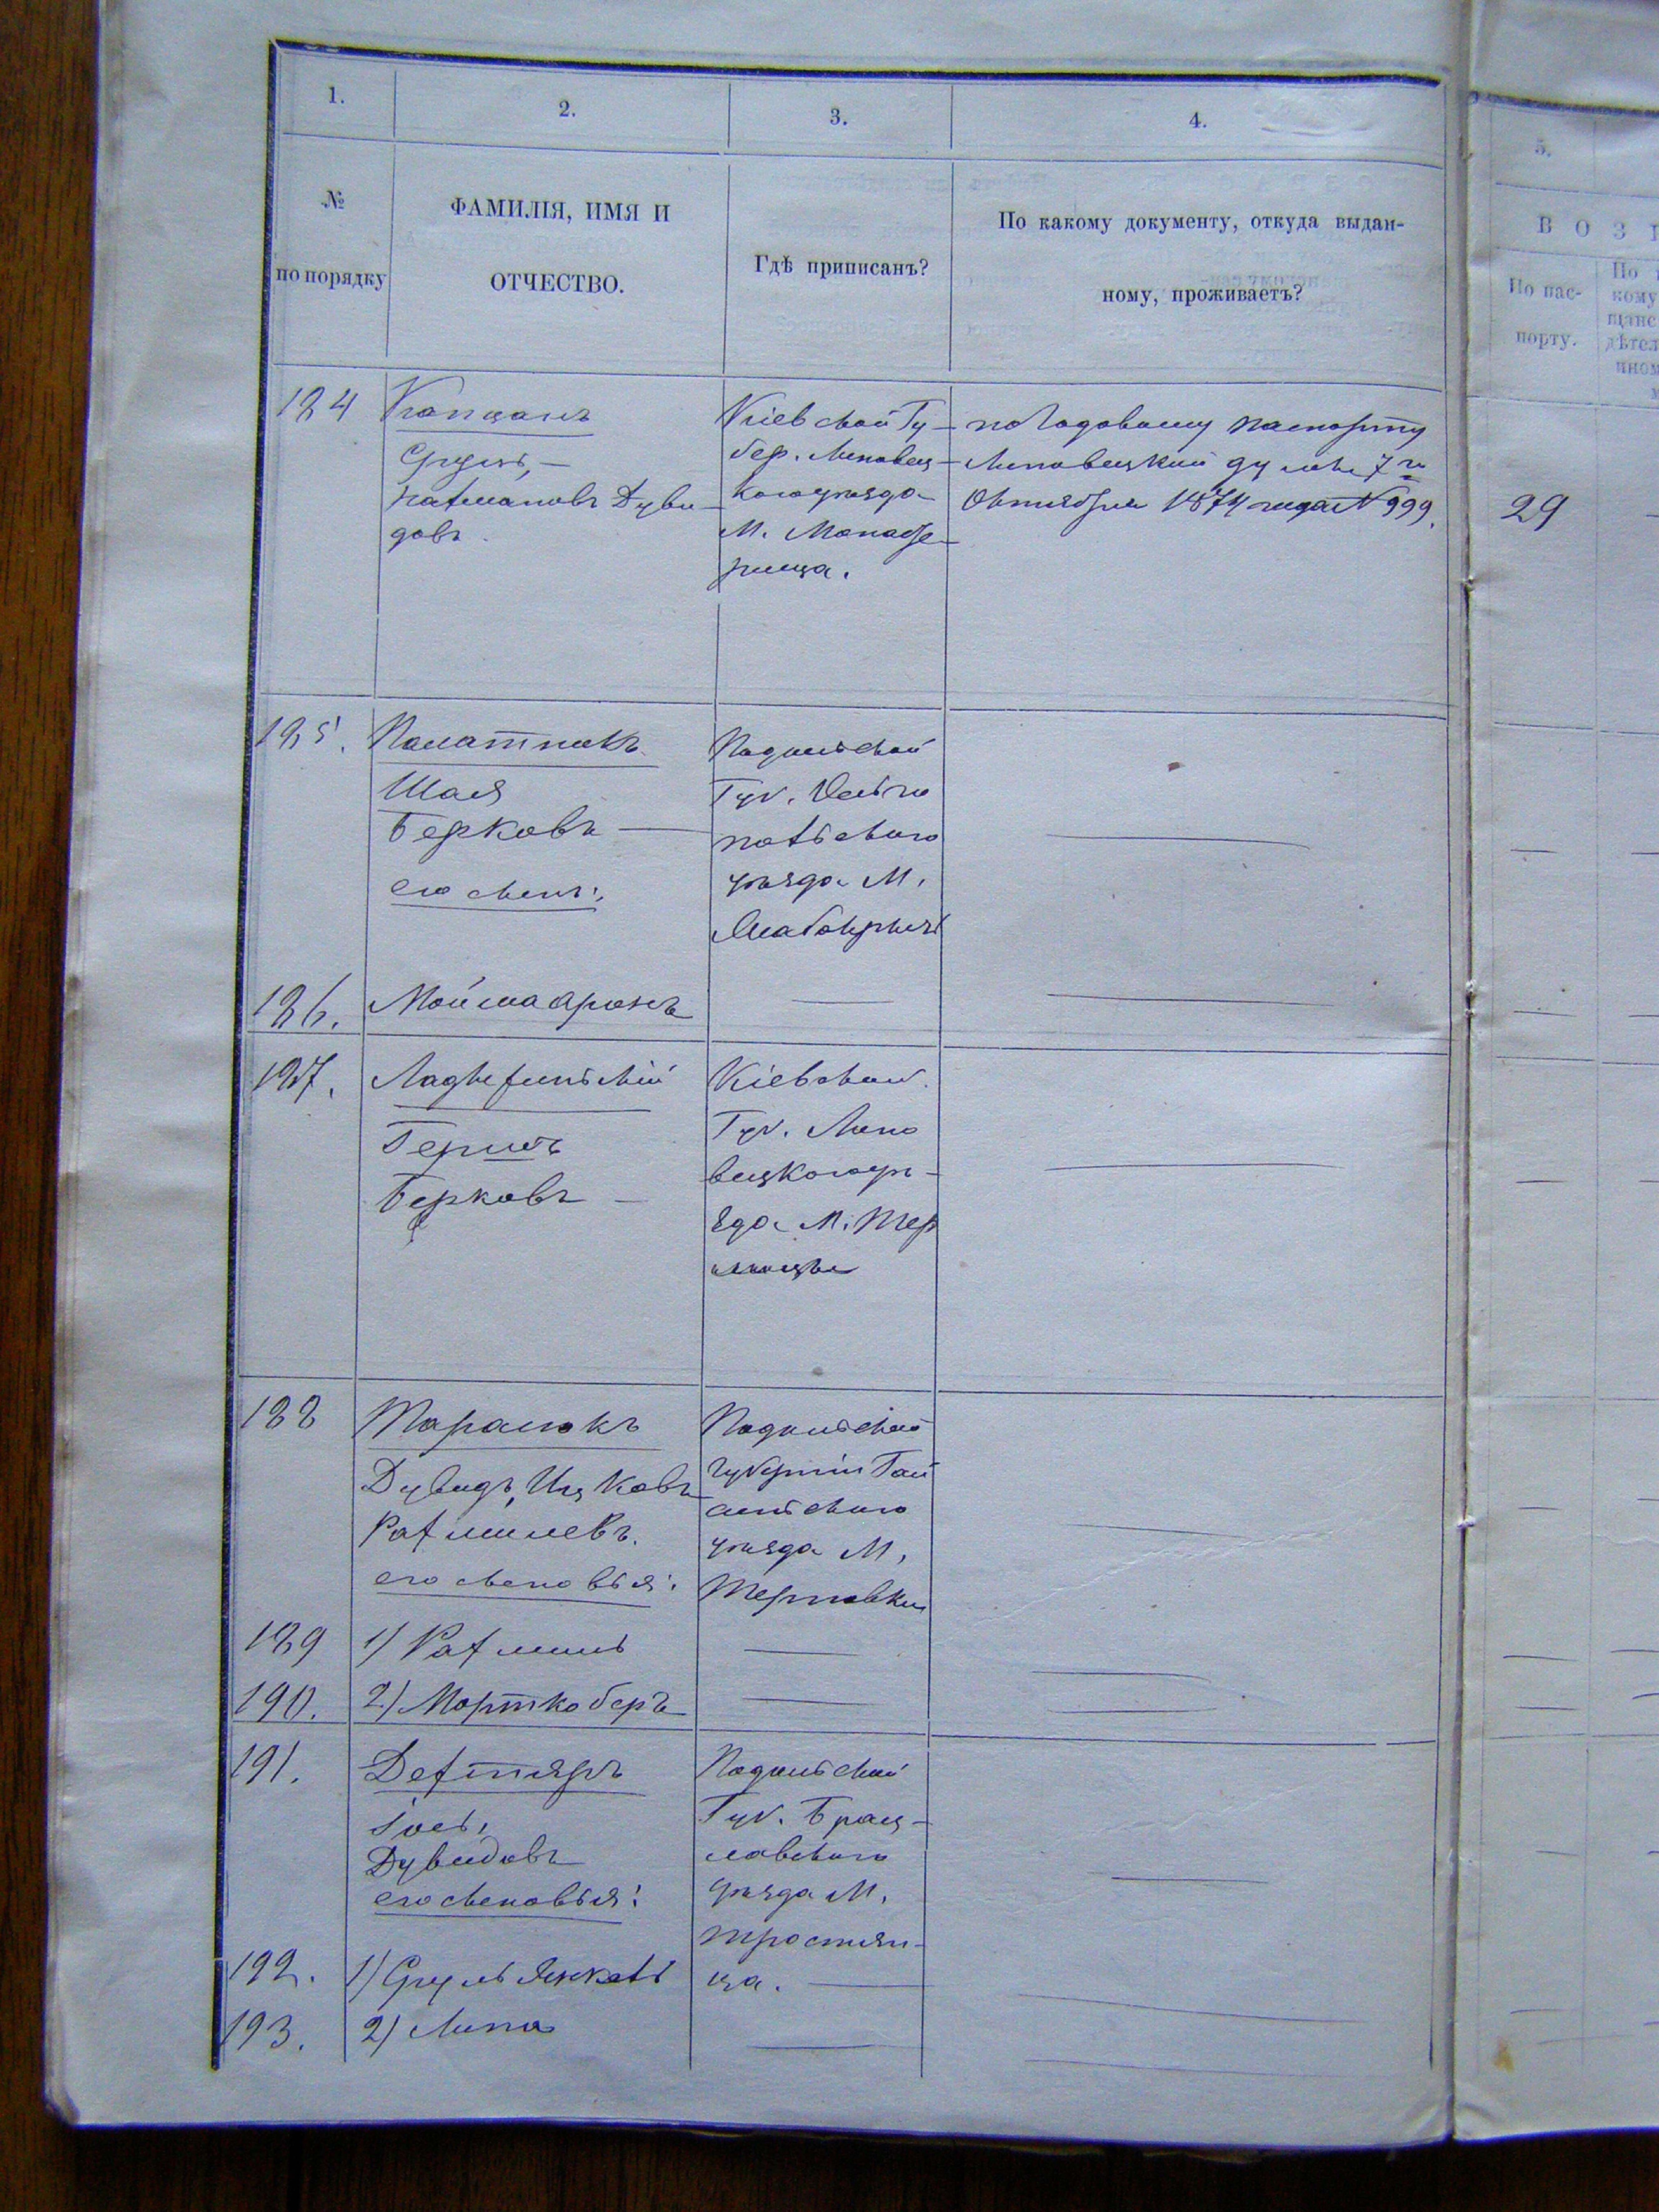 1.
2.
3.
4.
№
по порядку
ФАМИЛІЯ, ИМЯ И
ОТЧЕСТВО.
Гдѣ приписанъ?
По какому документу, откуда выдан-
ному, проживаетъ?
5.
ВОЗ
По пас-
порту.
По
кому
щанс
дѣтел
ином
184
Капцанъ
Сруль,
Нахмановъ Дуви-
довъ
Кіевской Гу-
бер. Липовец-
каго уѣзда
М. Монасты-
рища.
по Годовому паспорту
Липовецкий думы 7го
Октября 1874 года N 999.
29
185.
Палатникъ
Шая
Берковъ —
его сынъ:
Подольской
Губ. Ольго-
польскаго
уѣзда М.
186.
Мойша Аронъ
187.
Ладыжинскій
Гершъ
Берковъ —
Кіевской
Губ. Липо
вецкого уѣ-
зда М. Тер
188
Таралюкъ
Дувидъ, Ицковъ
Рахмилевъ.
его сыновья:
Подольской
Губерніи Гай
синскаго
уѣзда М.
Терновки
189
1) Рахмиль
190.
2) Мортко Беръ
191.
Дехтяръ
Іось,
Дувидовъ
его сыновья:
Подольской
Губ. Брац-
лавскаго
уѣзда М.
Тростян-
ца.
192.
1) Сруль Янкель
193.
2) Липа